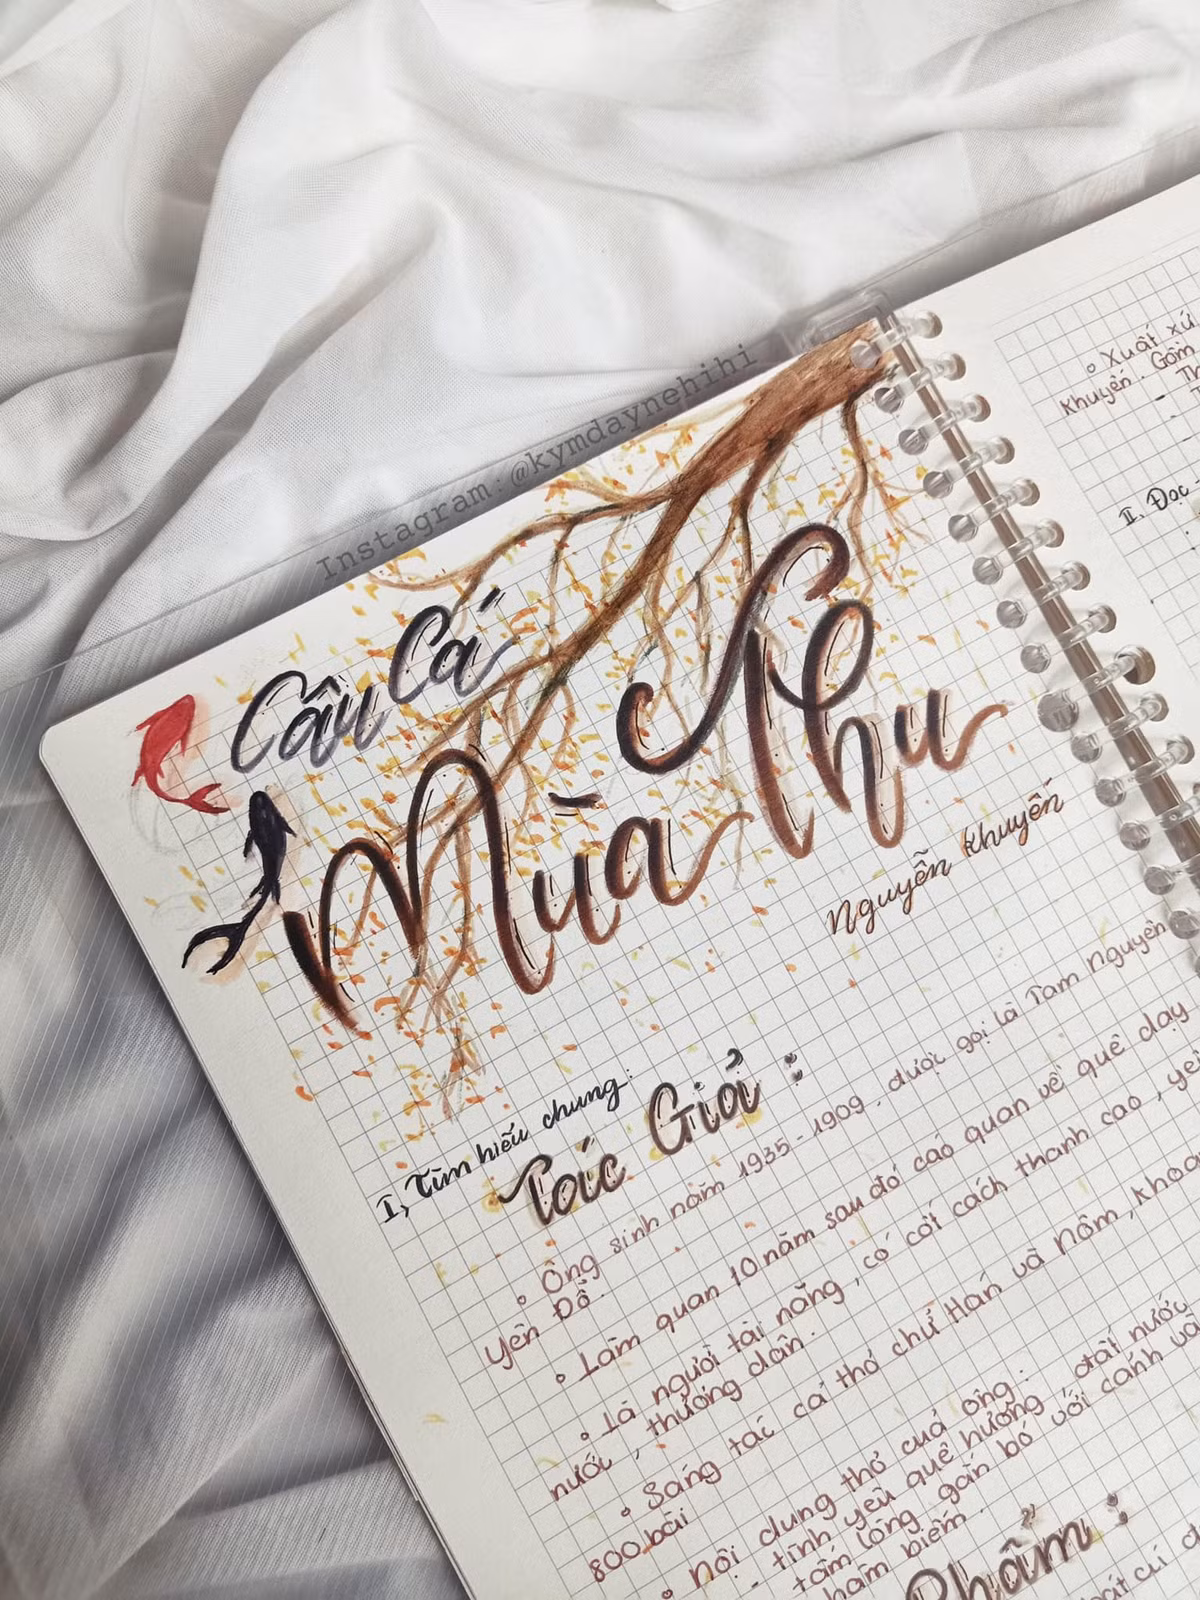 Instagram: @kymdaynehihi
Câu Cá
Mùa Thu
Nguyễn Khuyến
I, Tìm hiểu chung:
Tác Giả:
Ông sinh năm 1935-1909, được gọi là Tam Nguyên
Yên Đổ.
Làm quan 10 năm sau đó cáo quan về quê dạy
Là người tài năng, có cốt cách thanh cao, yêu
nước, thương dân.
Sáng tác cả thơ chữ Hán và Nôm, khoảng
800 bài
Nội dung thơ của ông:
- tình yêu quê hương đất nước
tấm lòng gắn bó với cảnh và
hâm biếm.
Phẩm:
Xuất xứ
Khuyến. Gồm
Th
II. Đọc -